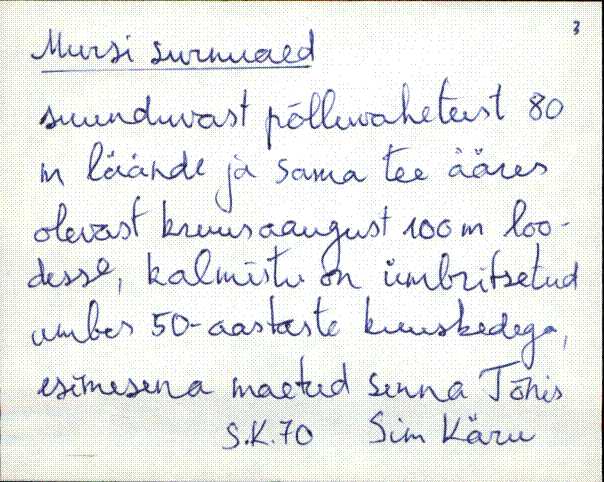 3
Mursi surnuaed
suunduvast põlluvaheteest 80
m läände ja sama tee ääres
olevast kruusaaugust 100 m loo-
desse, kalmistu on ümbritsetud
umbes 50-aastaste kuuskedega,
esimesena maetud sinna Tõnis
S.K.70 Sim Käru